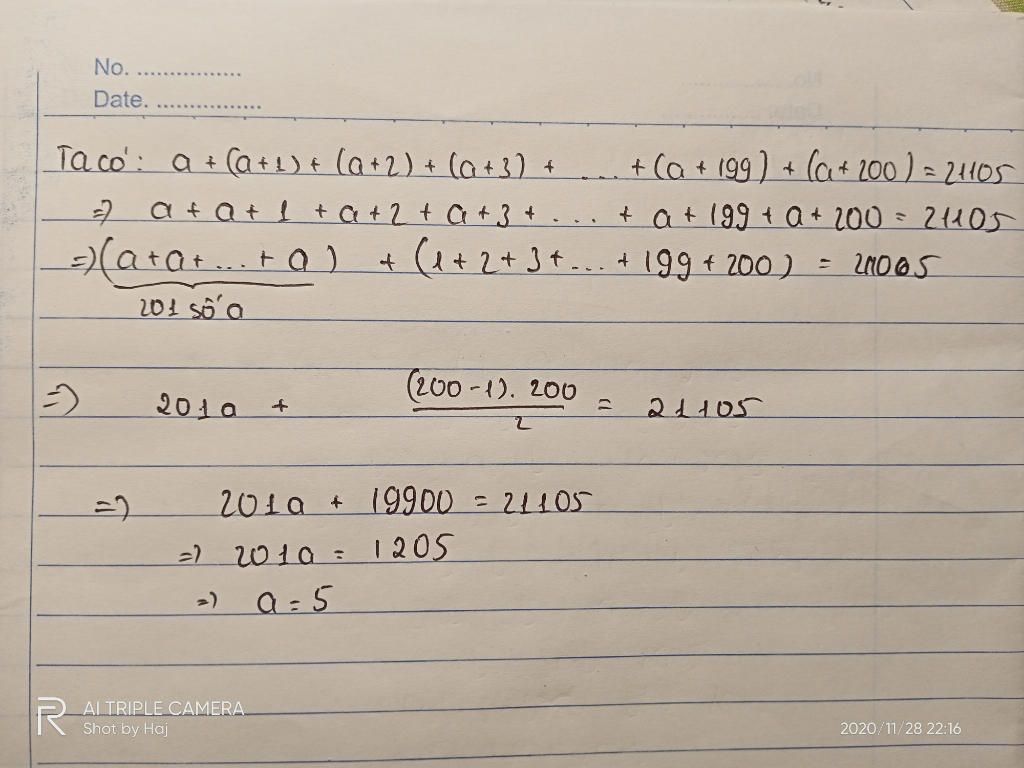 No. ................
Date. ................
Ta có: a + (a+1) + (a+2) + (a+3) + .... + (a + 199) + (a + 200) = 21105
=> a + a + 1 + a + 2 + a + 3 + .... + a + 199 + a + 200 = 21105
=> (a + a + ... + a) + (1 + 2 + 3 + ... + 199 + 200) = 21105
201 số a
=> 201a + (200 - 1). 200 / 2 = 21105
=> 201a + 19900 = 21105
=> 201a = 1205
=> a = 5
AI TRIPLE CAMERA
Shot by Haj
2020/11/28 22:16